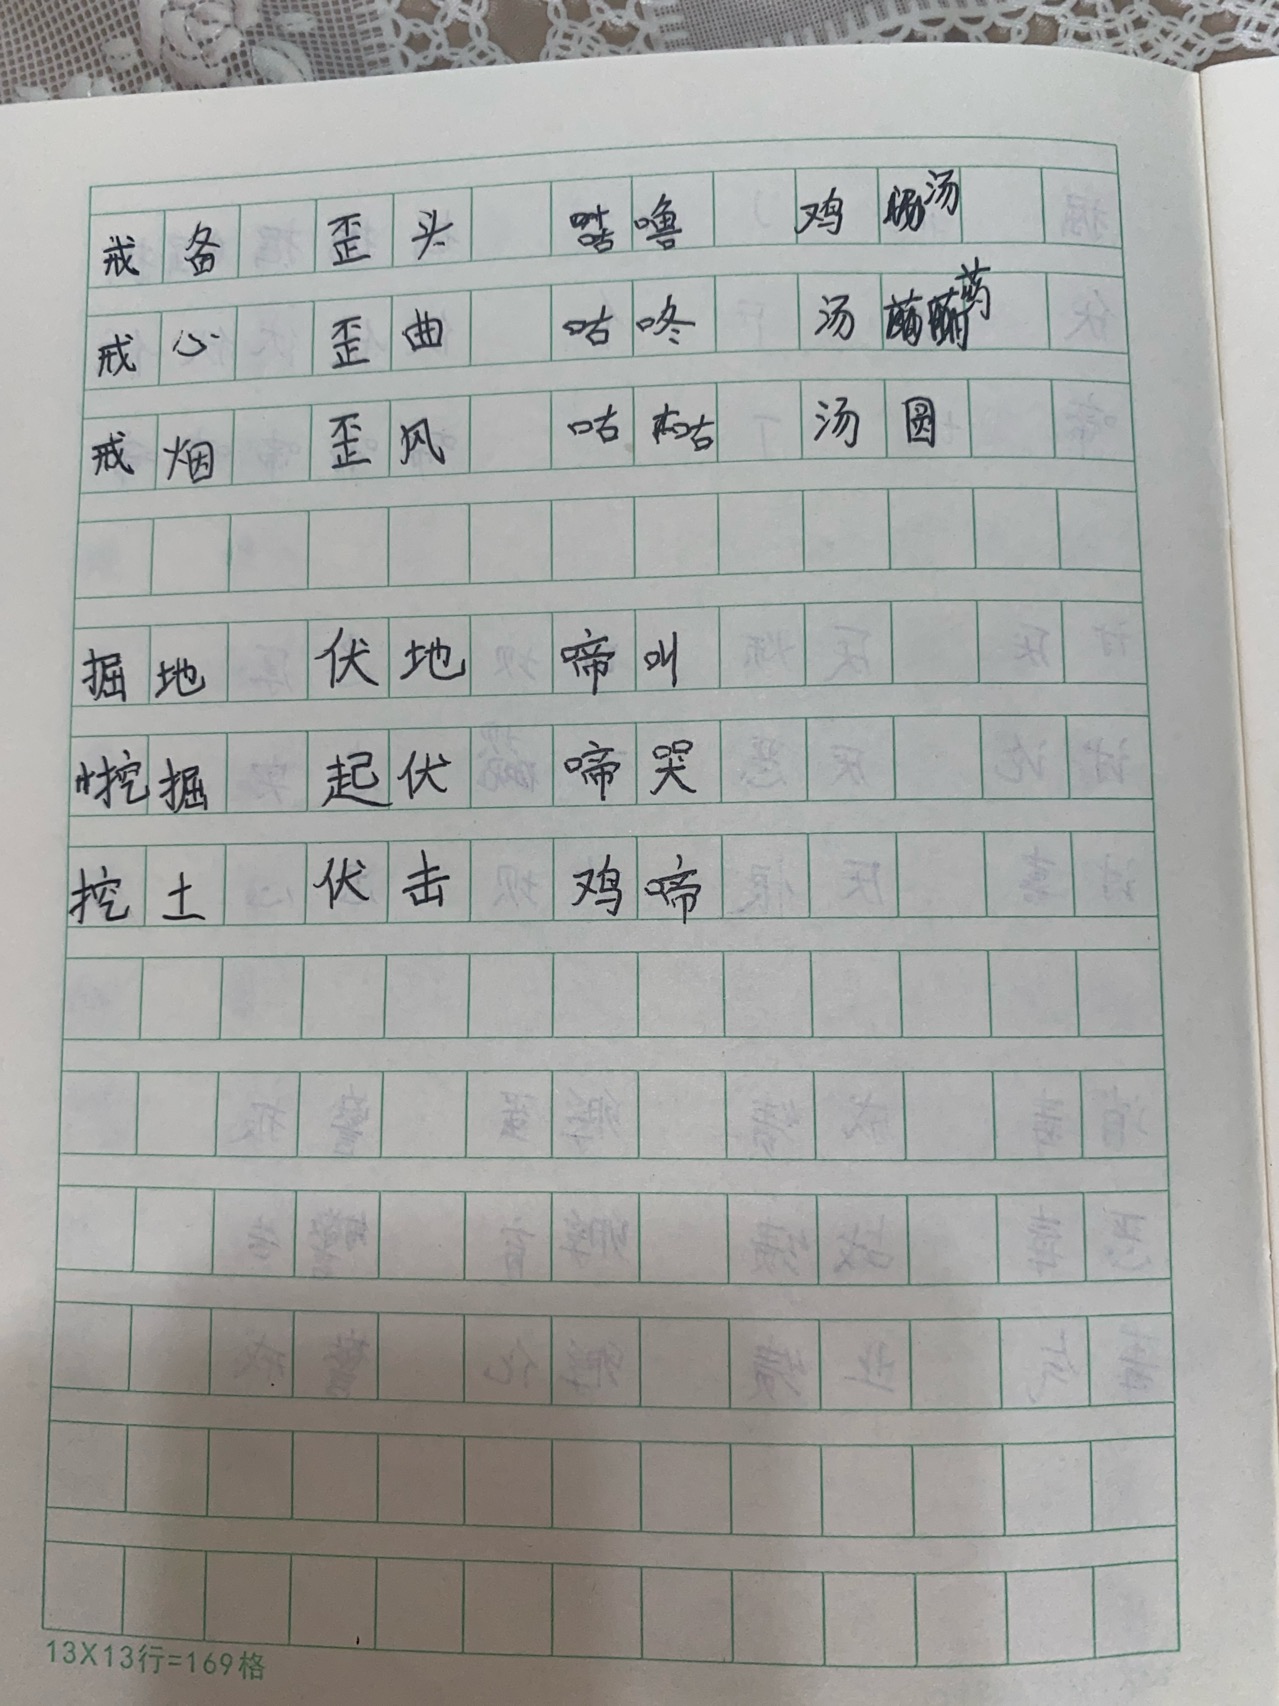 戒备 歪头 咕噜 鸡汤
戒心 歪曲 咕咚 汤药
戒烟 歪风 咕咕 汤圆
掘地 伏地 啼叫
挖掘 起伏 啼哭
挖土 伏击 鸡啼
13X13行=169格